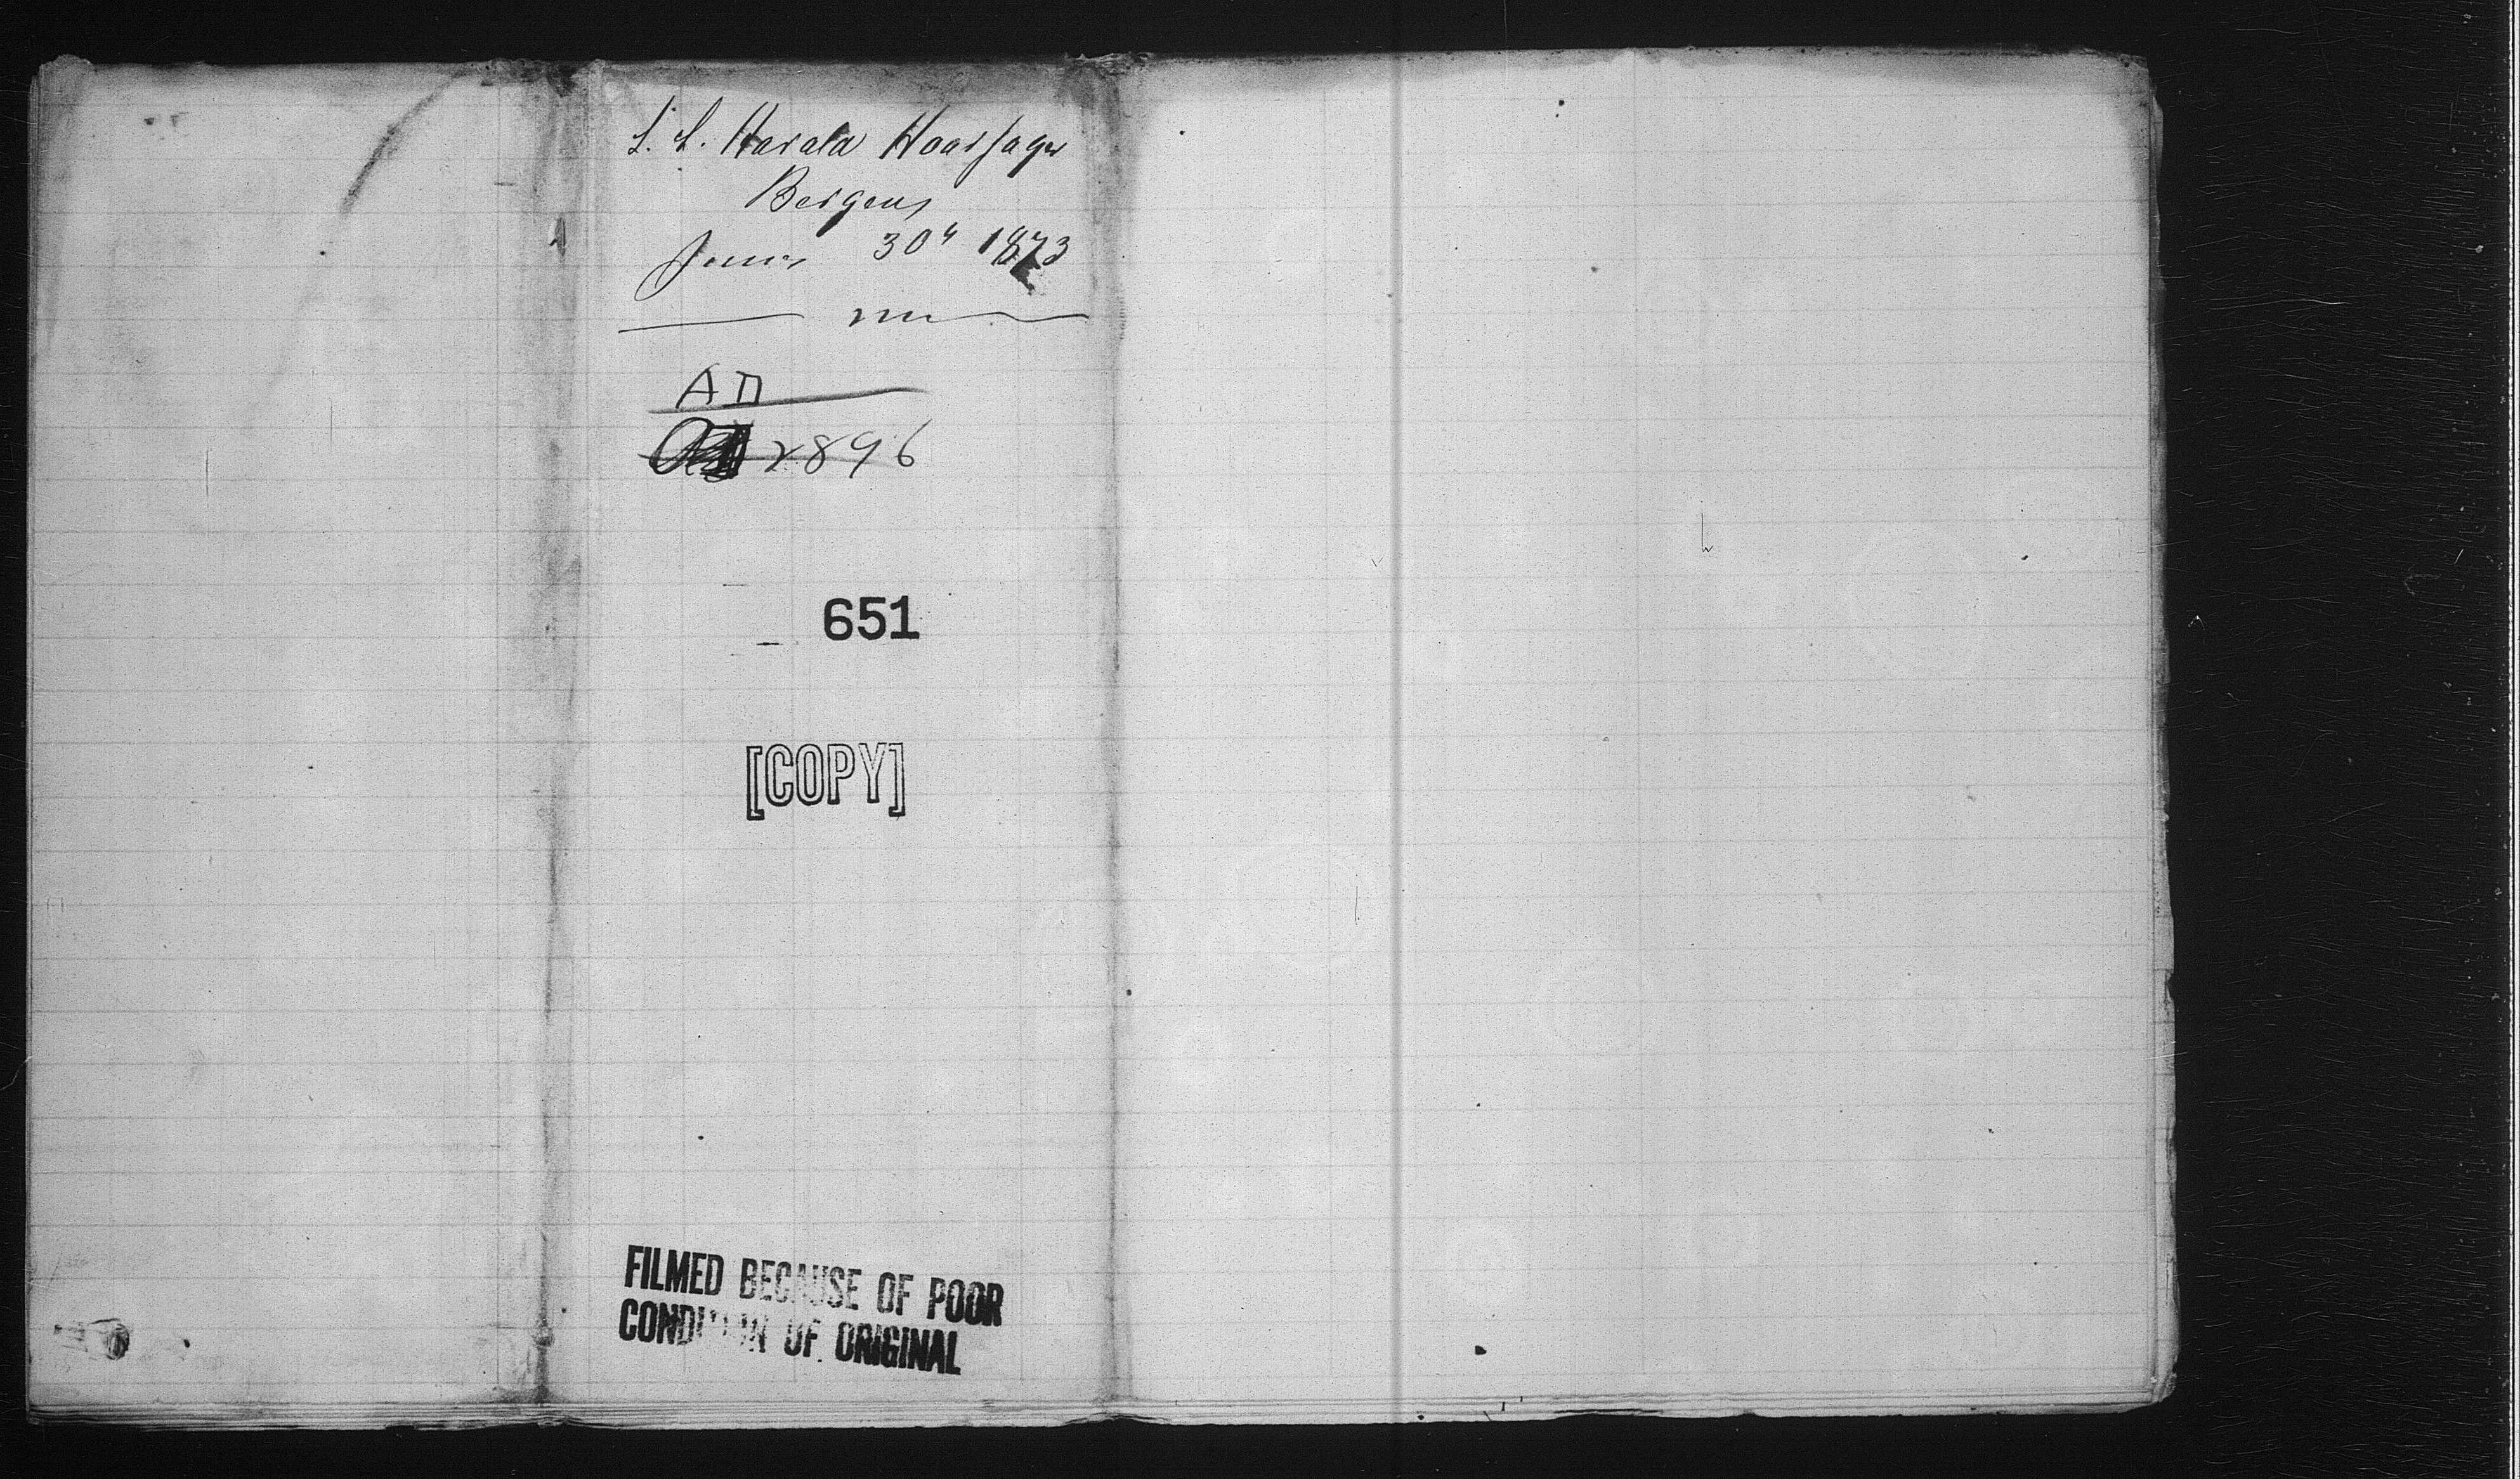 S. S. Harald Haarfager
Bergen,
June 30" 1873
AD
2896
651
[COPY]
FILMED BECAUSE OF POOR
CONDITION OF ORIGINAL